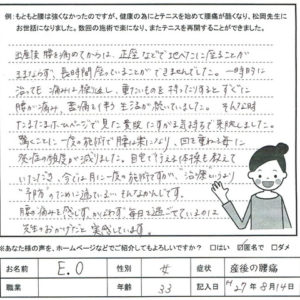 例：もともと腰は強くなかったのですが、健康の為にとテニスを始めて腰痛が酷くなり、松岡先生に
お世話になりました。数回の施術で楽になり、またテニスを再開することができました。
出産後腰を痛めてからは、正座などで地べたに座ることが
ままならず、長時間座っていることができませんでした。一時的に
治っても痛みは繰り返し、重たいものを持ったりするとすぐに
腰が痛み、苦痛を伴う生活が続いていました。そんな時
たまたまホームページで見た貴院にすがる気持ちで来院しました。
驚くことに一度の施術で腰は楽になり、回を重ねる毎に
発症の頻度が減りました。自宅で行える体操も教えて
いただき、今では月に一度の施術ですが、治療というより
“予防”のために通っている…そんなかんじです。
腰の痛みを感じず、かがめず毎日を過ごせているのは
先生のおかげだと実感しています。
※あなた様の声を、ホームページなどでご紹介してもよろしいですか？ □はい ☑匿名で □ダメ
お名前 E.O 性別 女 症状 産後の腰痛
職業 年齢 33 記入日 H27年8月14日